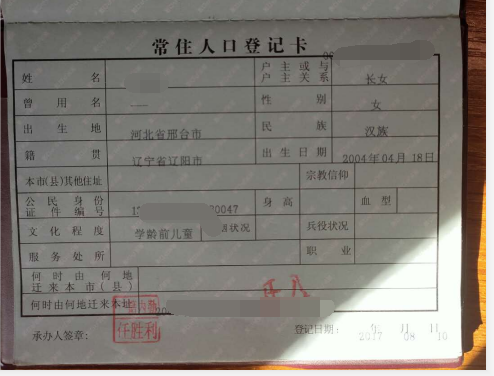 常住人口登记卡
姓名 户主或与户主关系 长女
曾用名 性别 女
出生地 河北省邢台市 民族 汉族
籍贯 辽宁省辽阳市 出生日期 2004年04月18日
本市(县)其他住址 宗教信仰
公民身份证件编号 0047 身高 血型
文化程度 学龄前儿童 状况 兵役状况
服务处所 职业
何时由何地迁来本市(县)
何时由何地迁来本址 20
承办人签章: 任胜利 登记日期: 2017年08月10